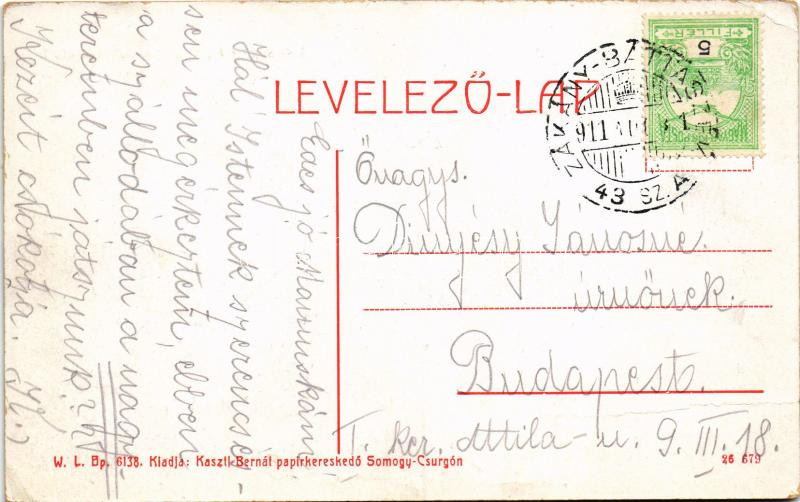 LEVELEZŐ-LAP
5
FILLÉR
ZÁKÁNY-BATTASZÉK
911
43 SZ. A
Édes jó Mamuskám
Hál' Istennek szerencsé-
sen megérkeztem, ebben
a szállodában a nagy
teremben játszunk.
Kezeit csókolja.
Őnagys.
Dinyésy Jánosné
úrnőnek.
Budapest.
I. ker. Attila-u. 9. III. 18.
W. L. Bp. 6138. Kiadja: Kaszti Bernát papirkereskedő Somogy-Csurgón
26 679